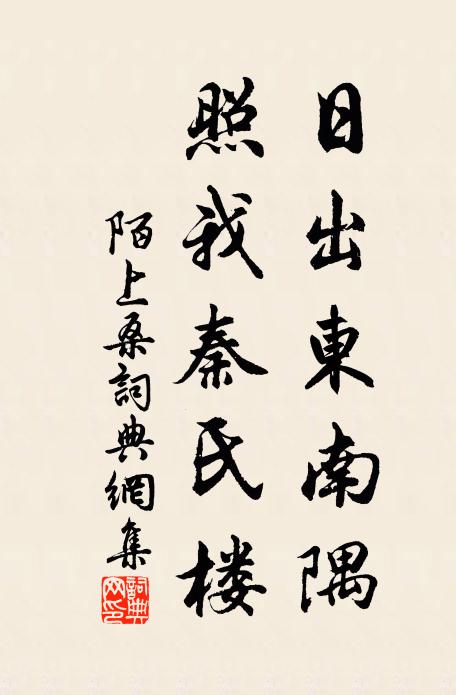 日出東南隅
照我秦氏楼
陌上桑詞典網集
詞典网印